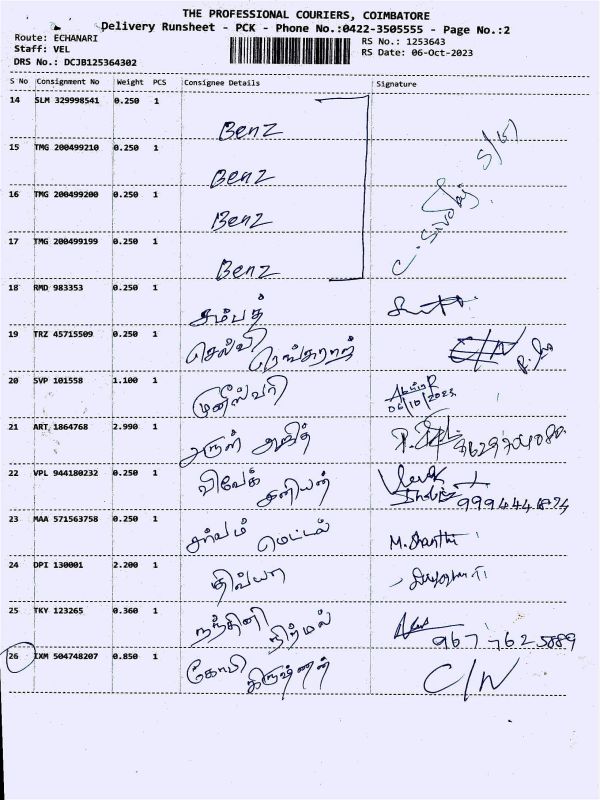 THE PROFESSIONAL COURIERS, COIMBATORE
Delivery Runsheet - PCK - Phone No.:0422-3505555 - Page No.:2
Route: ECHANARI
Staff: VEL
DRS No.: DCJB125364302
RS No.: 1253643
RS Date: 06-Oct-2023
S No Consignment No Weight PCS Consignee Details Signature
14 SLM 329998541 0.250 1 Benz
15 TMG 200499210 0.250 1 Benz
16 TMG 200499200 0.250 1 Benz
17 TMG 200499199 0.250 1 Benz
18 RMD 983353 0.250 1 சம்பத்
19 TRZ 45715509 0.250 1 செல்வி ரெங்கராஜ் C/N
20 SVP 101558 1.100 1 முனீஸ்வரி 06/10/2023
21 ART 1864768 2.990 1 அருண் அஜித்
22 VPL 944180232 0.250 1 விவேக்
23 MAA 571563758 0.250 1 சர்வம் மெட்டல் M. Shanthi
24 DPI 130001 2.200 1 திவ்யா
25 TKY 123265 0.360 1 நந்தினி நிர்மல்
26 IXM 504748207 0.850 1 கோபி கிருஷ்ணன் C/N